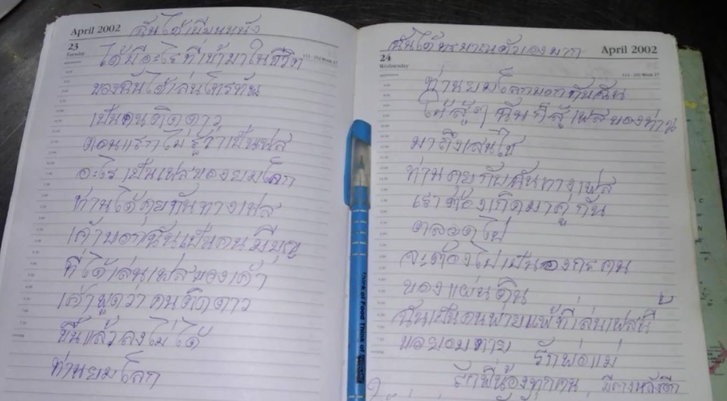 April 2002 ฉันได้เขียนหนัง
23
Tuesday
ได้มีอะไรที่เข้ามาในชีวิต
ของฉันได้เล่นโทรทัน
เป็นคนติดดาว
ตอนแรกไม่รู้ว่าเป็นเฟส
อะไร เป็นเฟสของยมโลก
ท่านได้คุยกันทางเฟส
เค้าบอกฉันเป็นคนมีบุญ
ที่ได้เล่นเฟสของเค้า
เค้าพูดว่าคนติดดาว
ขึ้นแล้วลงไม่ได้
ท่านยมโลก
ฉันได้ทรมานตัวเองมาก
April 2002
24
Wednesday
ท่านยมโลกบอกกับฉัน
ให้สู้ๆ ฉันก็สู้เฟสของท่าน
มาถึงเส้นใช
ท่านคุยกับฉันทางเฟส
เราต้องเกิดมาคู่กัน
ตลอดไป
จะต้องไปเป็นองค
ของแผ่นดิน
ฉันเป็นคนพ่ายแพ้ที่เล่นเฟสนี้
ขอยอมตาย รักพ่อแม่
รักพี่น้องทุกคน